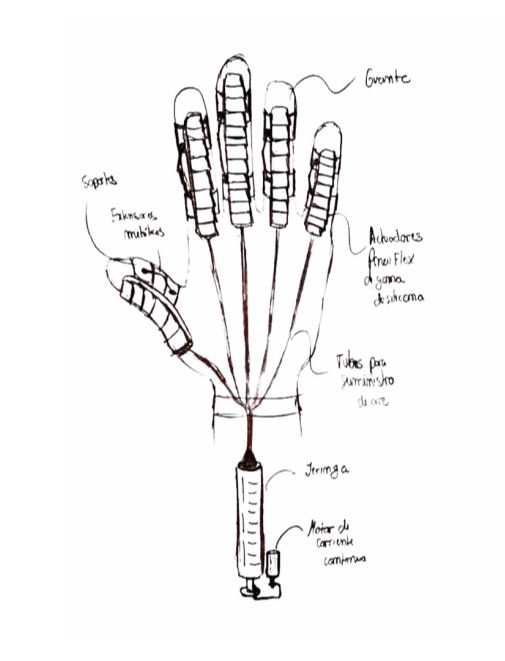 Guante
Soportes
Extensores
metálicos
Actuadores
PneuFlex
de goma
de silicona
Tubos para
suministro
de aire
Jeringa
Motor de
corriente
continua